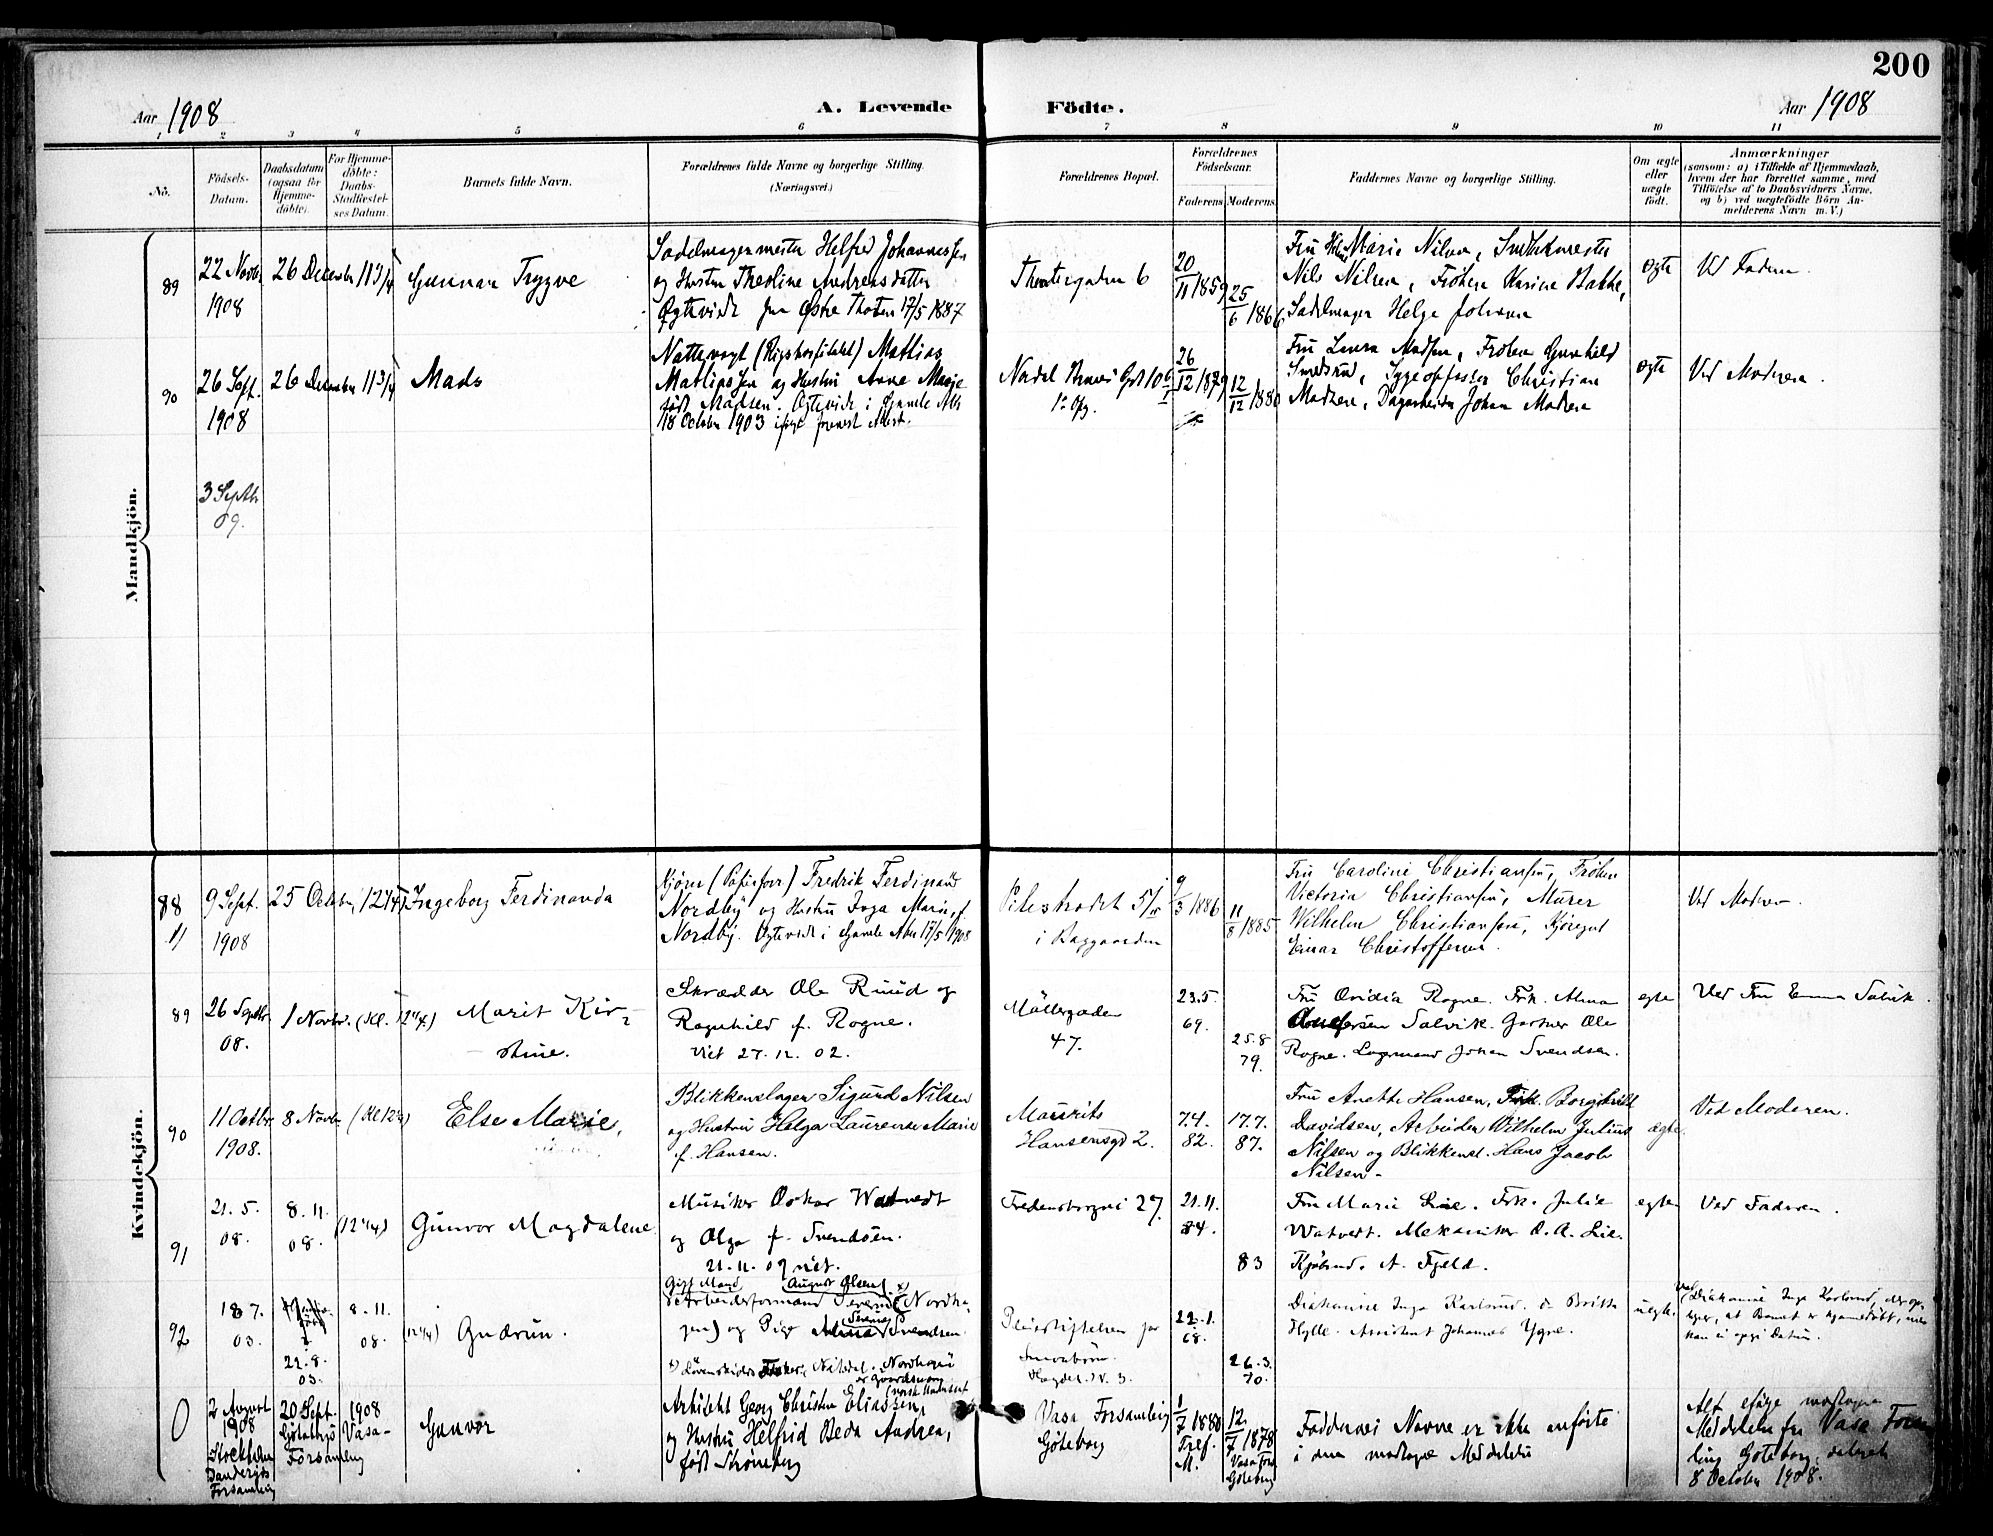 200
Aar 1908 A. Levende Födte. Aar 1908
1 2 3 4 5 6 7 8 9 10 11
No.
Födsels-
Datum.
Daabsdatum
(ogsaa for
Hjemme-
döbte).
For Hjemme-
döbte:
Daabs-
Stadfæstel-
ses Datum.
Barnets fulde Navn.
Forældrenes fulde Navne og borgerlige Stilling.
(Næringsvei.)
Forældrenes Bopæl.
Forældrenes
Födselsaar.
Faderens Moderens
Faddernes Navne og borgerlige Stilling.
Om ægte
eller
uægte
födt.
Anmærkninger
(saasom: a) i Tilfælde af Hjemmedaab,
hvem der har forrettet samme, med
Tilföielse af to Daabsvidners Navne,
og b) ved uægtefödte Börn An-
melderens Navn m. V.)
Mandkjön.
89
22 Novbr
1908
26 December 11 3/4
Gunnar Trygve
Sadelmagermester Helfred Johannessen
og Hustru Theoline Andreasdatter
Ægteviede fra Østre Thoten 17/5 1887
Theatergaden 6
20/11 1859
25/6 1866
Marie Nilsen,
Nils Nilsen, Frøken Karine Bakke,
Sadelmager Helge Johansen
ægte
Ved Faderen.
90
26 Sept.
1908
26 December 11 3/4
Mads
Nattevagt (Rigshospitalet) Mathias
Mathiassen og Hustru Anne Marie
født Madsen. Ægteviede i Gamle Aker
18 October 1903
26/12 1879
12/12 1880
Fru Laura Madsen, Frøken Gunhild
Smedsrud, Sygepasser Christian
Madsen, Dagarbeider Johan Madsen
ægte
Ved Moderen.
3 Septbr
09.
Kvindekjön.
88
9 Sept.
1908
25 October 12 1/4
Ingeborg Ferdinanda
Fredrik Ferdinand
Nordby og Hustru Inga Marie f.
Nordby. Ægteviede i Gamle Aker 17/5 1908
Pilestrædet 5
i Baggaarden
9/3 1886
11/8 1885
Fru Caroline Christiansen, Frøken
Victoria Christiansen, Murer
Wilhelm Christiansen, Kjøregut
Einar Christoffersen.
Ved Moderen.
89
26 Septbr.
08.
1 Novbr. (Kl. 12 1/4)
Marit Kir-
stine.
Skrædder Ole Ruud og
Ragnhild f. Rogne.
Viet 27.12.02.
Møllergaden
47.
23.5.
69.
25.8
79.
Fru Ovidia Rogne. Frk. Alma
Salvik. Gartner Ole
Rogne. Lagermand Johan Svendsen.
egte
Ved Fru Emma Salvik.
90
11 Octbr
1908.
8 Novbr (Kl 12 1/4)
Else Marie.
Blikkenslager Sigurd Nilsen
og Hustru Helga Laurense Marie
f. Hansen.
Mauritz
Hansensgd 2.
7.4.
82.
17.7.
87.
Fru Anette Hansen, Frk. Borghild
Davidsen, Arbeider Wilhelm Julius
Nilsen og Blikkensl. Hans Jacob
Nilsen.
ægte.
Ved Moderen.
91
21.5.
08.
8.11.
08.
(12 1/4)
Gunvor Magdalene
Musiker Oskar Watvedt
og Olga f. Svendsen.
21.11.07 viet.
Fredensborgvei 27.
21.11.
84.
83
Fru Marie Lie. Frk. Julie
Watvedt. Mekaniker O. A. Lie.
Kjøbmd. A. Fjeld.
egte
Ved Faderen.
92
18 7.
03.
22.8.
03.
8.11.
08.
(12 1/4)
Gudrun.
Gift Mand August Olsen
Arbeidsformand Severin (Nordha-
gen) og Pige Svendsen
Pleiestiftelsen for
Smaabørn.
22.1.
68.
26.3.
70.
Diakonisse Inga Karlsrud. do Britta
Hylle. Assistent Johannes Ygre.
uegte.
Diakonisse Inga Karlsrud, der op-
lyser, at Barnet er hjemmedøbt, men
kan ei opgi Datum.
0
2 August
1908
Stockholm
Danderyds
Forsamling
20 Sept. 1908
Göteborg Vasa-
Forsamling
Gunvor
Arkitekt Georg Christian Eliassen,
og Hustru Helfrid Beda Andrea,
født Strömberg
Vasa Forsamling
Göteborg
1/7 1880
12/7 1878
Vasa fors.
Göteborg
Faddernes Navne er ikke anførte
i den modtagne Meddelelse
Meddelelse fra Vasa Forsam
ling Göteborg, dateret
8 October 1908.